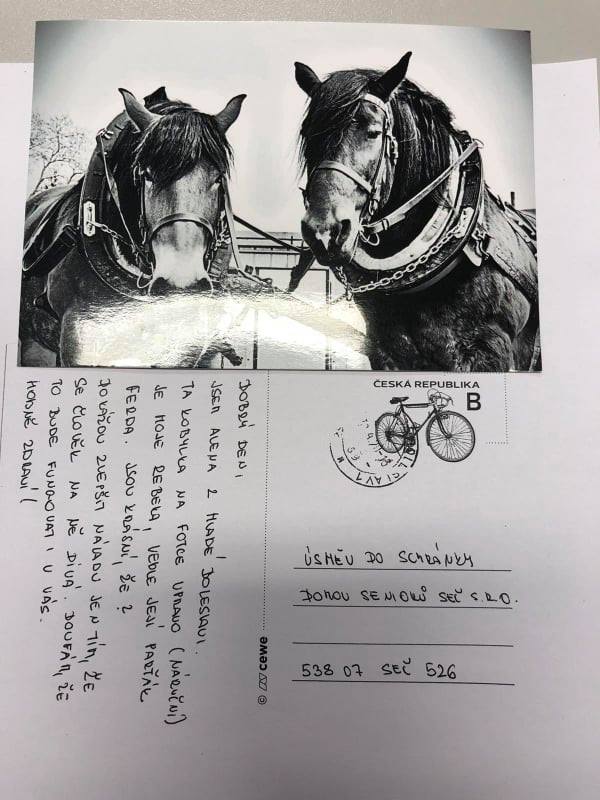 DOBRÝ DEN!
JSEM ALENA Z MLADÉ BOLESLAVI.
TA KOBYLKA NA FOTCE VPRAVO (NÁRUČNÍ)
JE MOJE REBELA, VEDLE JEJÍ PARŤÁK
FERDA. JSOU KRÁSNÍ, ŽE?
DOKÁŽOU ZLEPŠIT NÁLADU JEN TÍM, ŽE
SE ČLOVĚK NA NĚ DÍVÁ. DOUFÁM, ŽE
TO BUDE FUNGOVAT I U VÁS.
HODNĚ ZDRAVÍ!
© cewe
ČESKÁ REPUBLIKA
B
ÚSMĚV DO SCHRÁNKY
DOMOV SENIORŮ SEČ S.R.O.
538 07 SEČ 526